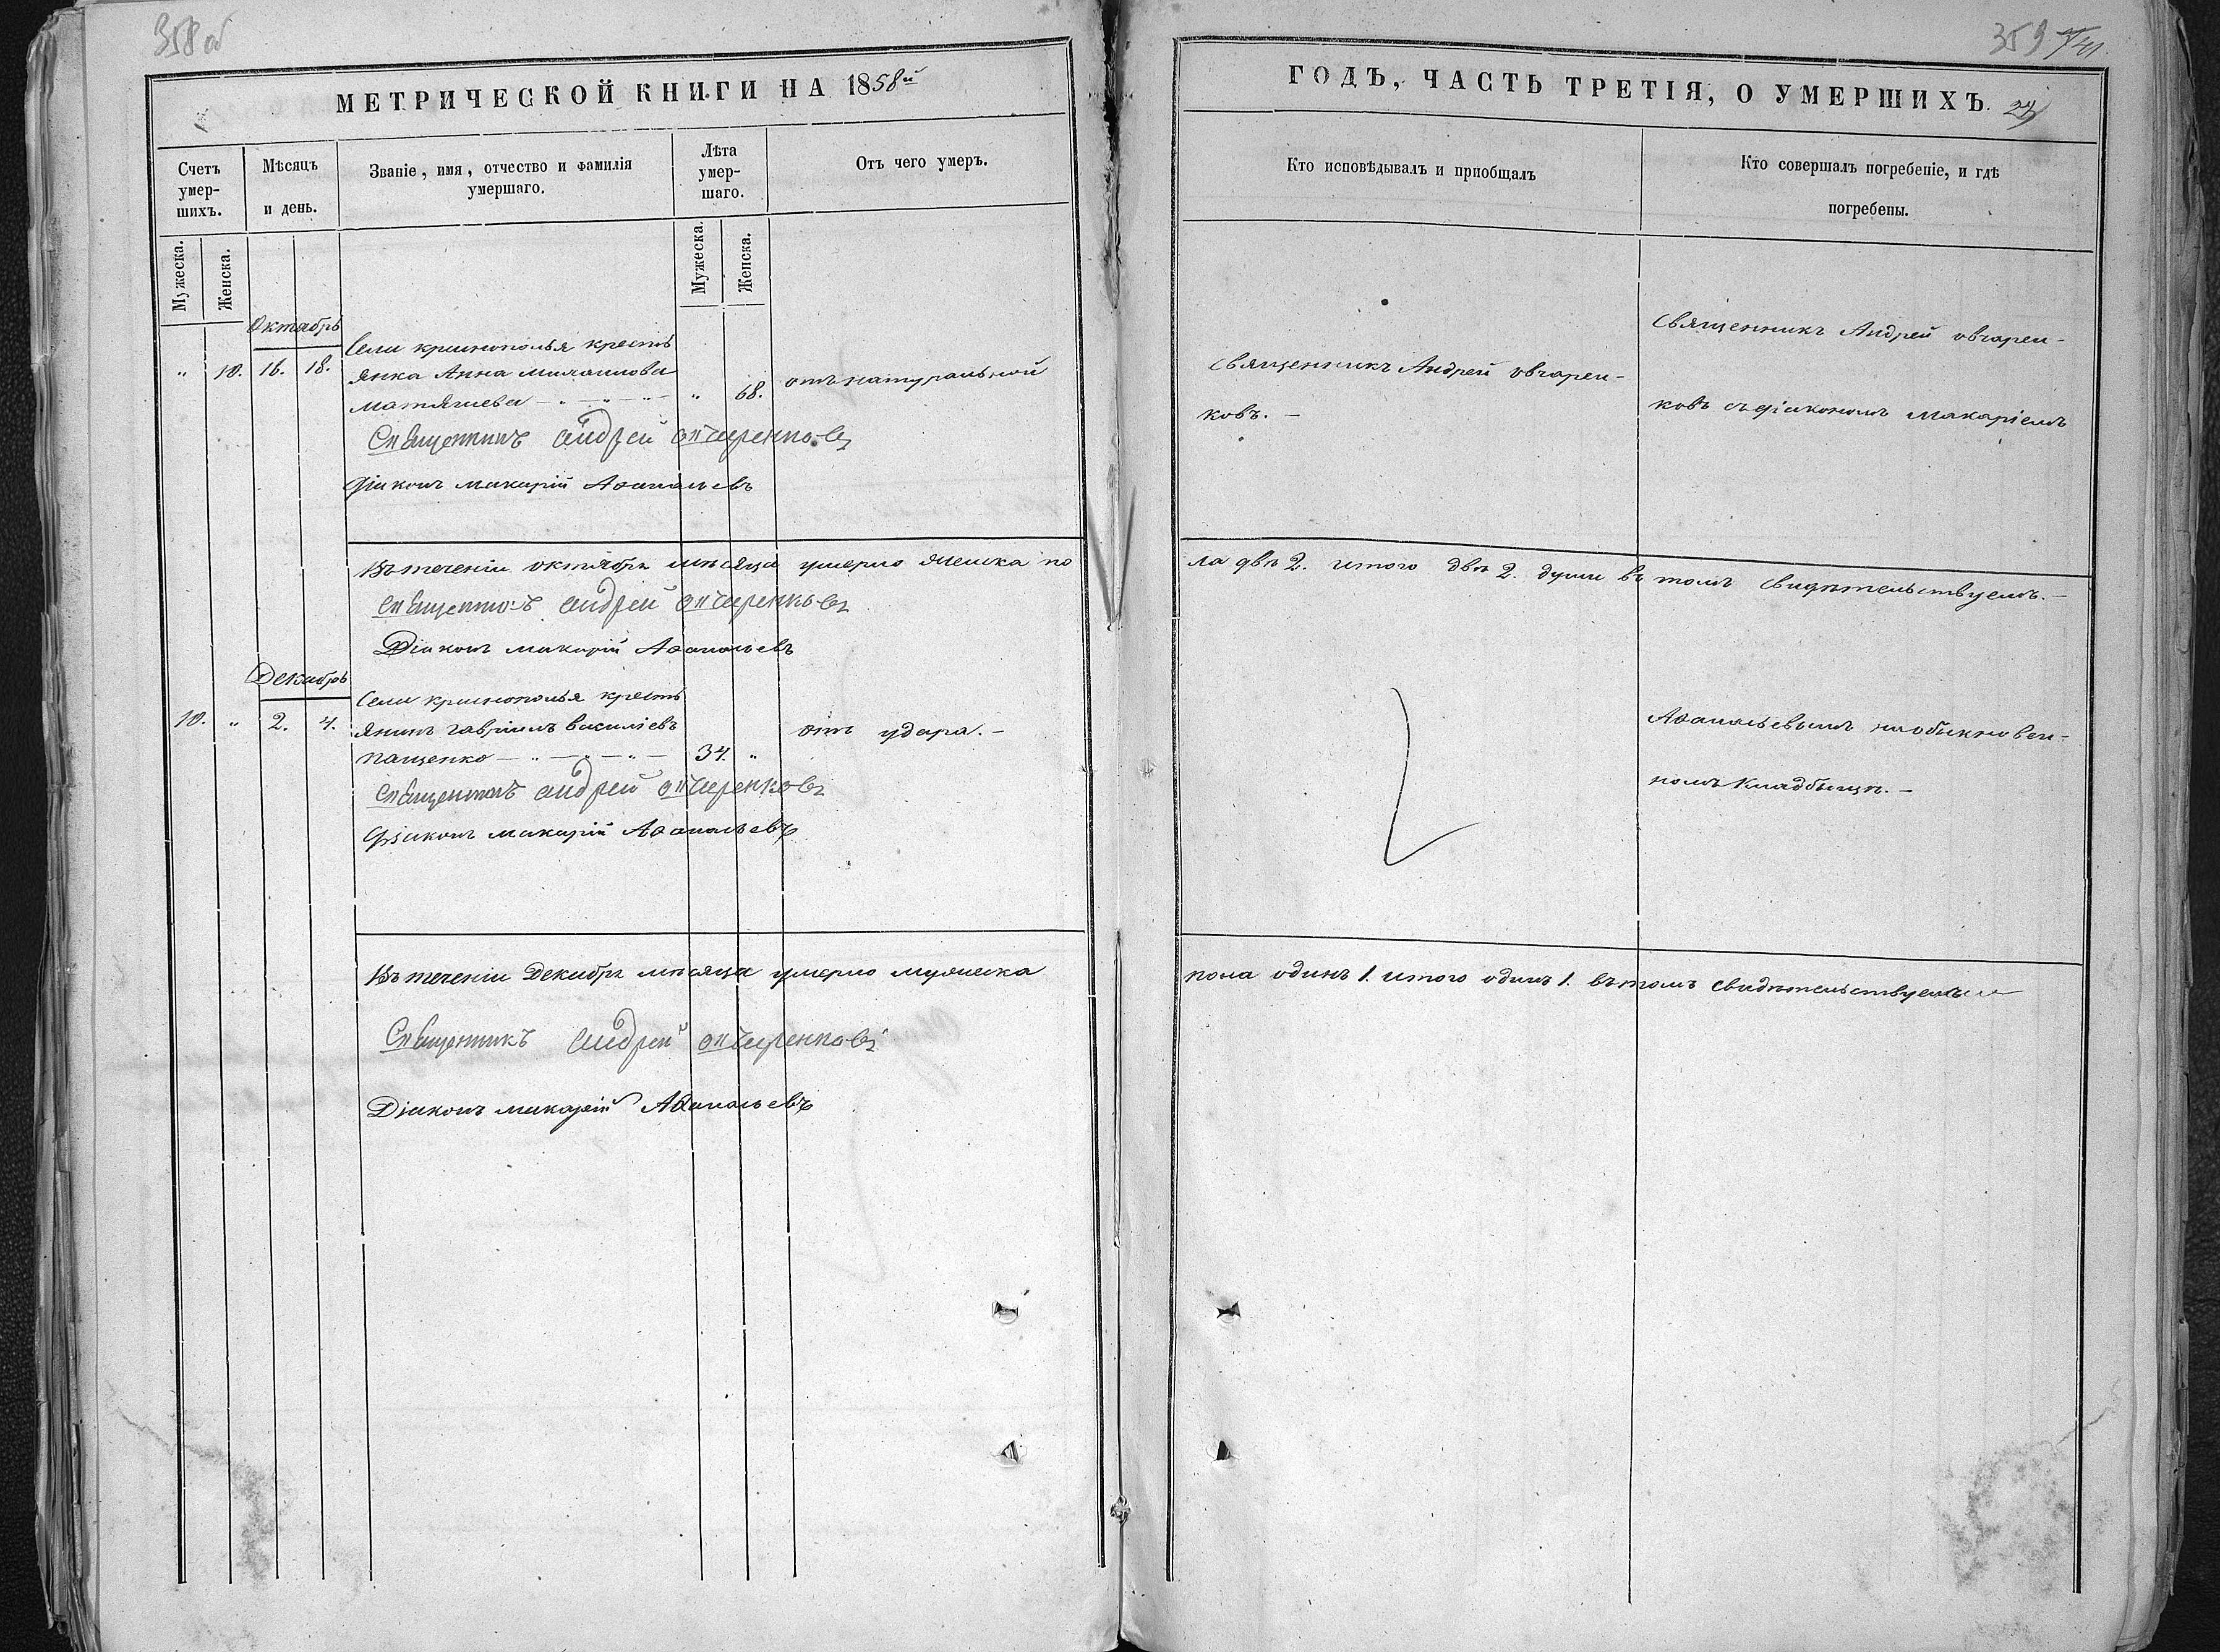 358об
МЕТРИЧЕСКОЙ КНИГИ НА 1858й
Счетъ умер-шихъ.
Мѣсяцъ и день.
Званіе, имя, отчество и фамилія умершаго.
Лѣта умер-шаго.
Отъ чего умеръ.
Мужеска.
Женска.
Мужеска.
Женска.
Октябрь
Села криничополья кресть
" 10. 16. 18. янка Анна михаилова " 68. отъ натуральной
матяшева
Священникъ Андрей Овчаренковъ
Діаконъ макарій Аѳанасьевъ
Въ теченіи октября мѣсяца умерло женска по
Священникъ Андрей Овчаренковъ
Діаконъ макарій Аѳанасьевъ
Декабрь
Села криничополья кресть
10. " 2. 4. янинъ гавріилъ василіевъ отъ удара.
пащенко 34. "
Священникъ Андрей Овчаренковъ
Діаконъ макарій Аѳанасьевъ
Въ теченіи Декабря мѣсяца умерло мужеска
Священникъ Андрей Овчаренковъ
Діаконъ макарій Аѳанасьевъ
359
ГОДЪ, ЧАСТЬ ТРЕТІЯ, О УМЕРШИХЪ.
Кто исповѣдывалъ и пріобщалъ
Кто совершалъ погребеніе, и гдѣ
погребены.
Священникъ Андрей овчарен-
ковъ.
Священникъ Андрей овчарен-
ковъ съ діакономъ макаріемъ
ла двѣ 2. итого двѣ 2. души въ томъ свидѣтельствуемъ.
Аѳанасьевымъ на обыкновен-
номъ кладбищѣ.
пола одинъ 1. итого одинъ 1. въ томъ свидѣтельствуемъ